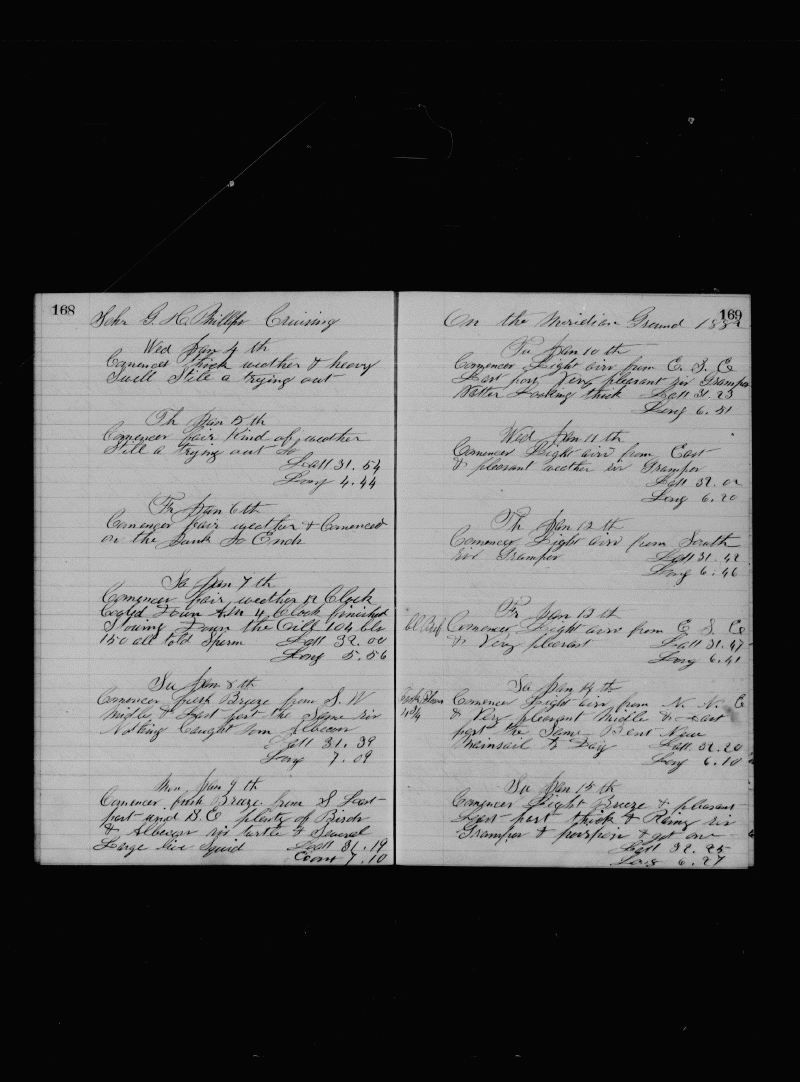 168
Schr G. H. Phillips Cruising
Wed Jan 4 th
Comences thick weather & heavy
Swell Still a trying out
Th Jan 5 th
Comences fair Kind of weather
Still a trying out So
Latt 31.54
Long 4.44
Fr Jan 6 th
Comences fair weather & Comenced
on the Junk So Ends
Sa Jan 7 th
Comences fair weather 12 Clock
Coold Down 4 Clock finished
Stowing Down the Oill 104 bls
150 all told Sperm Latt 32.00
Long 5.56
Su Jan 8 th
Comences fresh Breeze from S. W
Midle & Last part the Same
Nothing Caught
Latt 31.39
Long 7.09
Mon Jan 9 th
Comences fresh Breeze from S Last
part and S.E plenty of Birds
& turtle & Several
Large live Squid Latt 31.19
7.10
169
On the Meridian Ground 188
Tu Jan 10 th
Comences Light airs from E. S. E
Last part Very pleasant sir Gramper
Watter Looking thick Latt 31.23
Long 6.51
Wed Jan 11 th
Comences Light airs from East
& pleasant weather sir Gramper
Latt 32.02
Long 6.20
Th Jan 12 th
Comences Light airs from South
Gramper Latt 31.42
Long 6.46
Fr Jan 13 th
Bl Beef Comences Light airs from E S E
& Very pleasant Latt 31.47
Long 6.41
Sa Jan 14 th
Comences Light airs from N. N. E
& Very pleasant Midle & Last
part the Same Bent New
Mainsail to Day Latt 32.20
Long 6.10
Su Jan 15 th
Comences Light Breeze & pleasant
Last part thick & Rainy
Gramper & porpoise & got one
Latt 32.25
Long 6.27